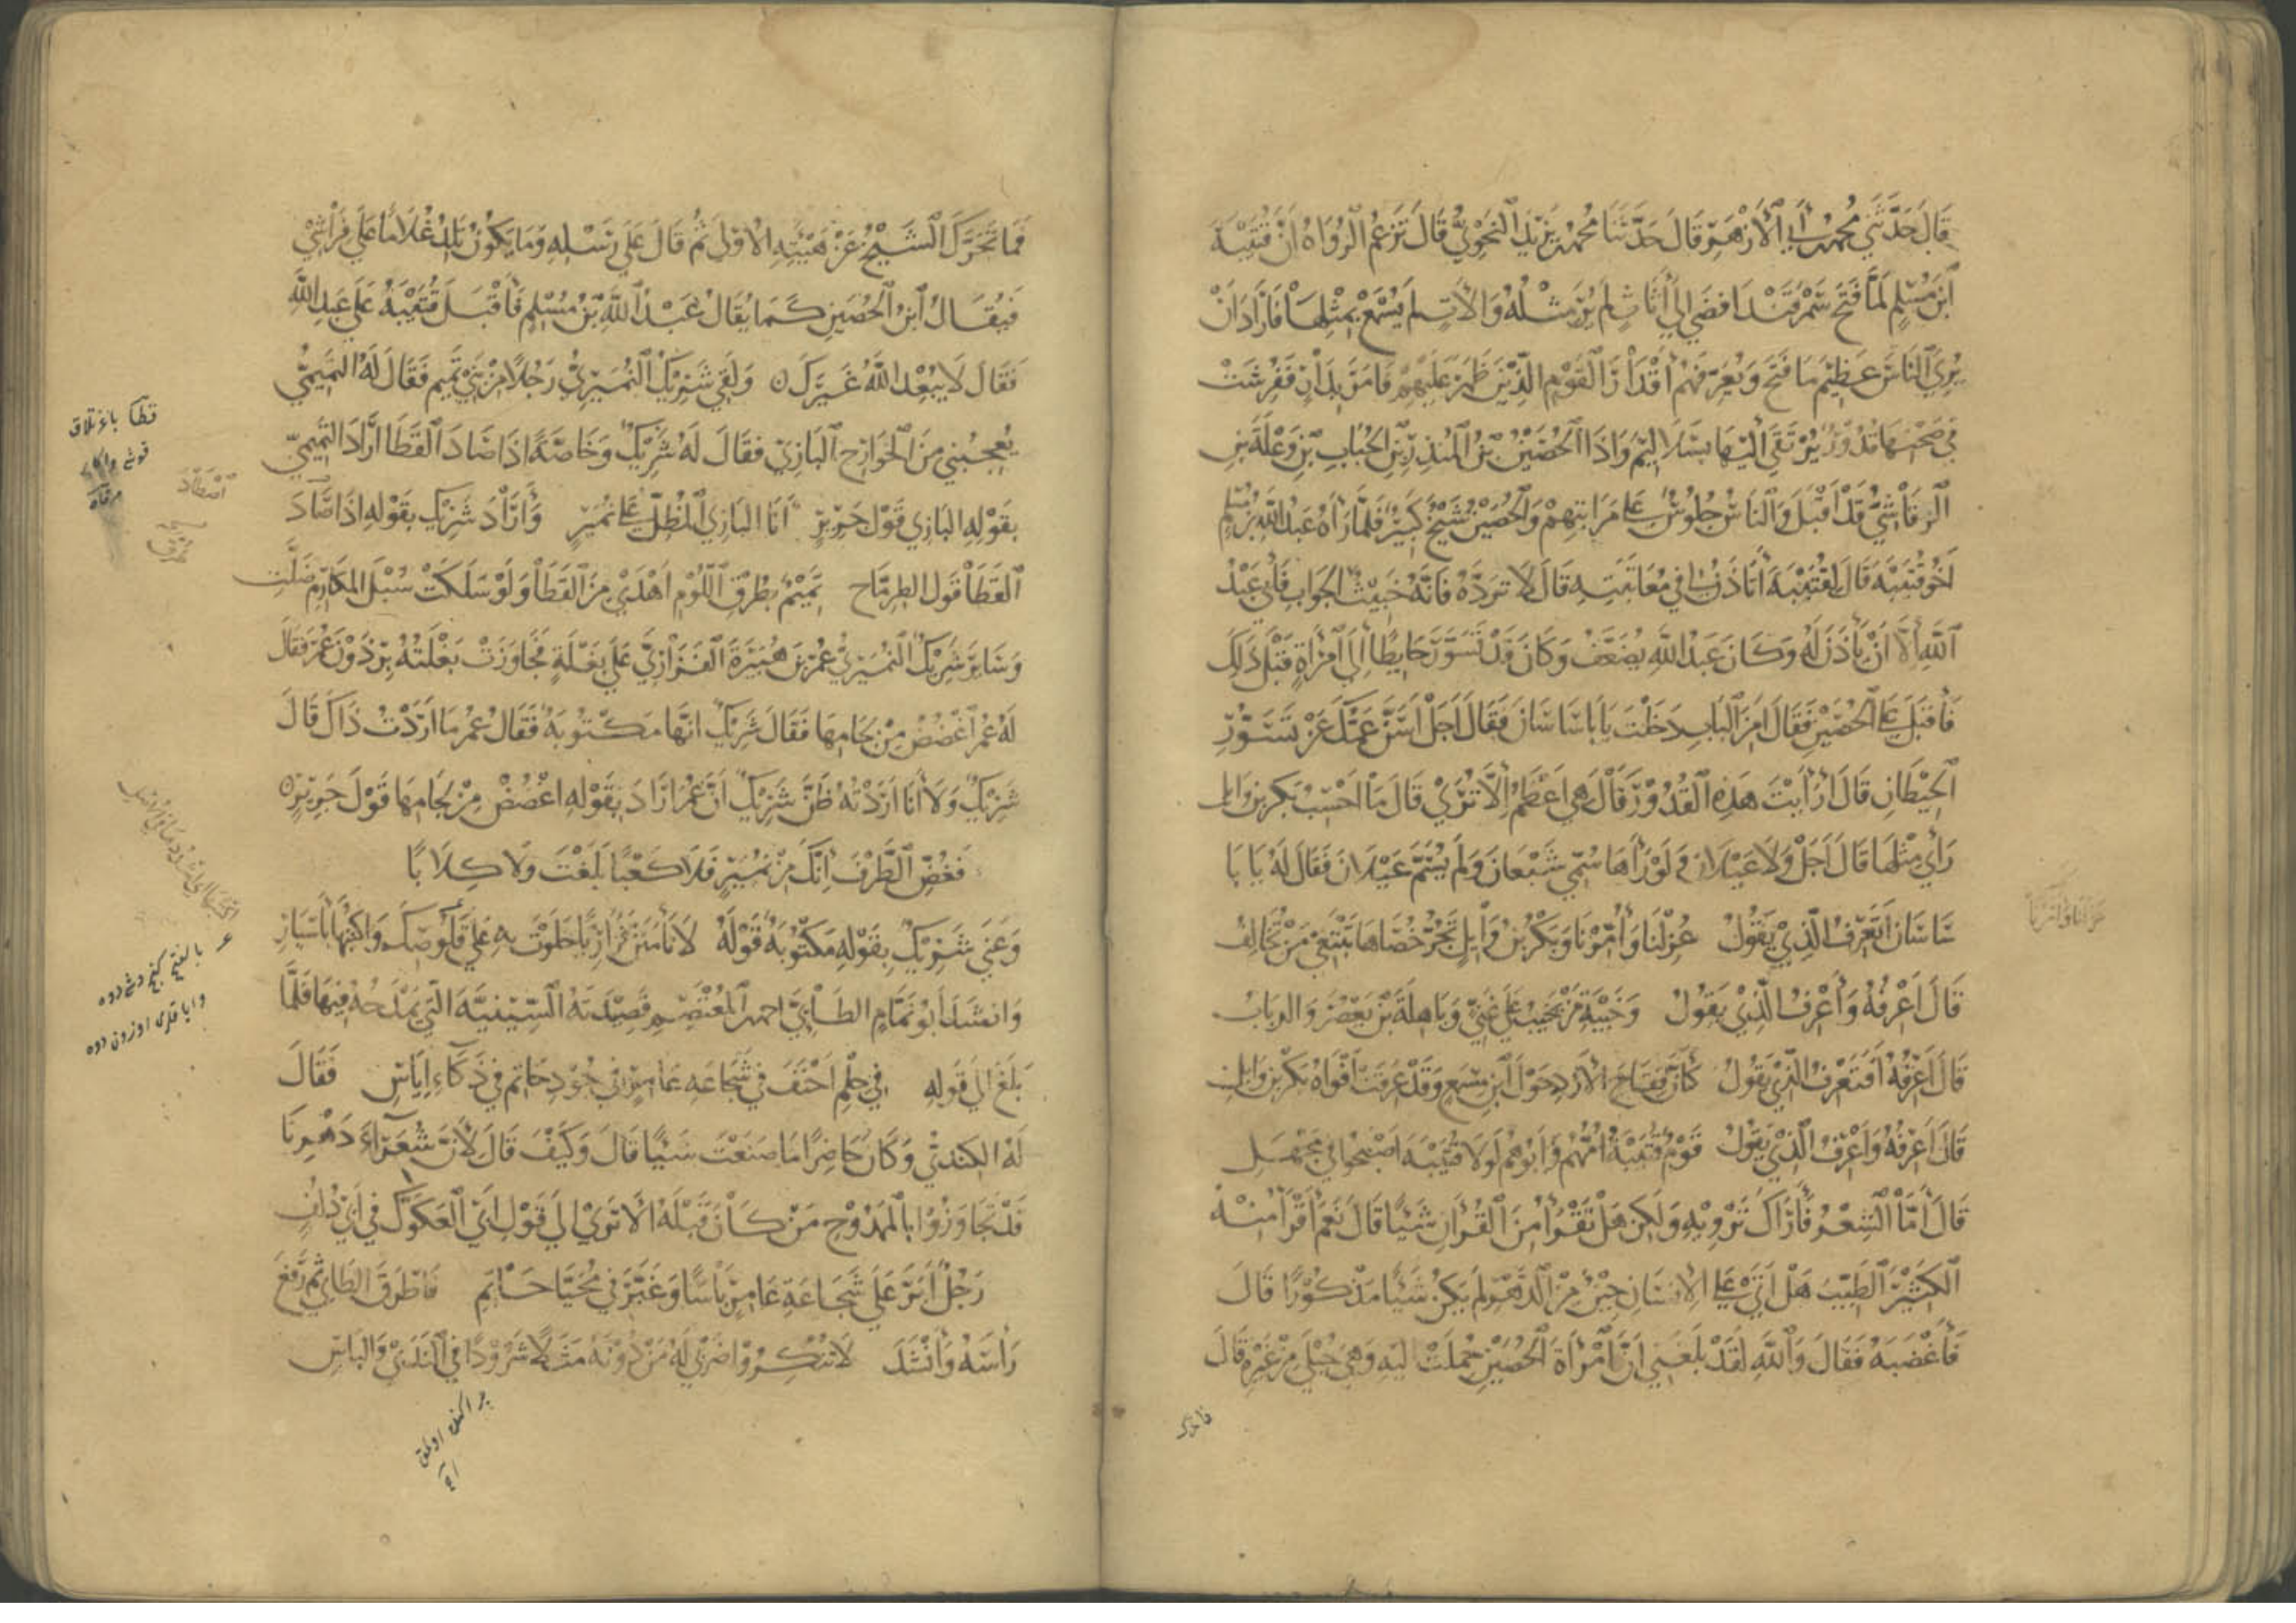 قَالَ حَدَّثَنِي مُحَمَّد بن أبي الأزهر قَالَ حَدَّثَنَا مُحَمَّد بن يَزيد النَّحويُّ قَالَ تَزعُم الرُّوَاةُ أَنَّ قُتَيبَةَ
ابن مُسلِم لَمَّا فَتَحَ سَمَرقَند افضَى إلى أثاثٍ لم يُرَ مثلُهُ وَالاتٍ لم يُسمَع بمِثلِهَا فَأَرَادَ أَن
يُرِيَ النَّاسَ عَظِيم مَا فَتَحَ وَيُعَرِّفَهُم أَقدَارَ القَومِ الَّذِينَ ظَهَرَ عَلَيهِم فَامَرَ بِدَارٍ فَفُرِشَت
فِي صَحنِهَا قُدُورٌ يُرتَقَى اليهَا بِسَلَالِيمَ وَاذَا الحُضَينُ بنُ المُنذِرِ بنِ الحُبَابِ بنِ وَعلَةَ بنِ
الرقاشيُّ قَد أَقبَلَ وَالنَّاسُ جُلُوسٌ عَلى مَرَاتِبِهِم وَالحُضَينُ شَيخٌ كَبِيرٌ فَلَمَّا رَآهُ عَبدُ اللهِ بنُ مُسلِمٍ
أَخُو قُتَيبَة قَالَ لِقُتَيبَة أَتَأذَنُ لي في مُعَاتَبَتِهِ قَالَ لَا تَرِدهُ فَانَّهُ خَبِيثُ الجَوَابِ فَأَبى عَبدُ
اللهِ ألَّا أَن يَأذَنَ لَهُ وَكَانَ عَبدُ اللهِ يُضَعَّفُ وَكَانَ قَد تَسَوَّرَ حَايِطًا الَى امرَأَةٍ قَبلَ ذَلِكَ
فَأَقبَلَ عَلى الحُضَينِ فَقَالَ امِنَ البَابِ دَخَلتَ يَا بَا سَاسَانَ فَقَالَ أَجَل أَسَنَّ عَمُّكَ عَن تَسَوُّرِ
الحِيطَانِ قَالَ أَرَأَيتَ هَذِهِ القُدُورَ قَالَ هِي أَعظَمُ الَّا تُرَى قَالَ مَا أَحسِب بَكر بن وَايِل
رَأَى مِثلَهَا قَالَ أَجَل وَلَا عَيلَان وَلَو رَآهَا سُمِّي شَبعَانَ وَلَم يُسَمَّ عَيلَانَ فَقَالَ لَهُ يَا بَا
سَاسَانَ أَتَعرِفُ الَّذِي يَقُولُ عُزِلنَا وَأُمِّرنَا وَبَكرُ بنُ وَائِلٍ تَجُرُّ خُصَاهَا تَبتَغِي مَن تُحَالِفُ
قَالَ أَعرِفُهُ وَأَعرِفُ الَّذِي يَقُولُ وَخَيبَةُ مَن يَخِيبُ عَلى غَنِيٍّ وَبَاهِلَةَ بن يَعصُرَ وَالرباب
قَالَ أَعرِفُهُ أَفَتَعرِفُ الَّذِي يَقُولُ كَأَنَّ فِقَاحَ الأَزدِ حَولَ ابنِ مِسمَعٍ وَقَد عَرِقَت أَفوَاهُ بَكرِ بنِ وَايلِ
قَالَ أَعرِفُهُ وَأَعرِفُ الَّذِي يَقُولُ قَومٌ قُتَيبَةُ أُمُّهُم وَأَبُوهُم لَولَا قُتَيبَة اصبَحُوا في مَجهَلِ
قَالَ أَمَّا الشِّعرُ فَأَرَاكَ تَروِيهِ وَلَكِن هَل تَقرَأُ مِنَ القُرآنِ شَيئًا قَالَ نَعَم أَقرَأُ مِنهُ
الكَثِيرَ الطَّيِّبَ هَل أَتَى عَلى الإنسَانِ حِينٌ مِنَ الدَّهرِ لَم يَكُن شَيئًا مَذكُورًا قَالَ
فَأَغضَبَهُ فَقَالَ وَاللهِ لَقَد بَلَغَنِي أَنَّ امرَأَة الحُضَينِ حُمِلَت اليهِ وَهِيَ حُبلَى مِن غَيرِهِ قَالَ
فَمَا تَحَرَّكَ الشَّيخُ عَن هَيئَتِهِ الأُولى ثُمَّ قَالَ عَلَى رَسلِهِ وَمَا يَكُونُ تَلِدُ غُلَامًا عَلَى فِرَاشِي
فَيُقَالُ ابنُ الحُضَينِ كَمَا يُقَالُ عَبدُ اللهِ بنُ مُسلِمٍ فَأَقبَلَ قُتَيبَةُ عَلَى عَبدِ اللهِ
فَقَالَ لَا يُبعِدُ اللهُ غَيرَكَ ه وَلَقِيَ شَرِيكٌ النُّمَيرِيُّ رَجُلًا مِن بَنِي تَمِيم فَقَالَ لَهُ التَّمِيمِيُّ
يُعجِبُنِي مِنَ الجَوَارِحِ البَازِي فَقَالَ لَهُ شَرِيكٌ وَخَاصَّةً اذَا صَادَ القَطَا أَرَادَ التَّمِيمِيُّ
بِقَولِهِ البَازِي قَولَ جَرِيرٍ أَنَا البَازِي المُطِلُّ عَلى نُمَيرٍ وَأَرَادَ شَرِيكٌ بِقَولِهِ اذَا صَادَ
القَطَا قَولَ الطِرِمَّاح تَمِيمٌ بِطُرقِ اللُّومِ أَهدَى مِنَ القَطَا وَلَو سَلَكَت سُبلَ المَكَارِمِ ضَلَّتِ
وَسَايَرَ شَرِيكٌ النُّمَيرِيُّ عُمَرَ بنَ هُبَيرَةَ الفَزَارِيَّ عَلَى بَغلَةٍ فَجَاوَزَت بَغلَتُهُ بِرذَونَ عُمَرَ فَقَالَ
لَهُ عُمَرُ اغضُض مِن لِجَامِهَا فَقَالَ شَرِيكٌ انَّهَا مَكتُوبَةٌ فَقَالَ عُمَرُ مَا أَرَدتُ ذَاكَ قَالَ
شَرِيكٌ وَلَا أَنَا أَرَدتُهُ ظَنَّ شَرِيكٌ أَنَّ عُمَرَ أَرَادَ بِقَولِهِ اغضُض مِن لِجَامِهَا قَولَ جَرِيرٍ ه
فَغُضَّ الطَّرفَ انَّكَ مِن نُمَيرٍ فَلَا كَعبًا بَلَغتَ وَلَا كِلَابًا
وَعَنَى شَرِيكٌ بِقَولِهِ مَكتُوبَةٌ قَولَهُ لَا تَأمَنَنَّ فَزَارِيًّا خَلَوتَ بِهِ عَلَى قَلُوصِكَ وَاكتُبهَا بِأَسيَارِ
وَانشَدَ أَبُو تَمَّامٍ الطَّائِيُّ احمد المُعتَصِم قَصِيدَتَهُ السِّينِيَّةَ الَّتِي يَمدَحُهُ فِيهَا فَلَمَّا
بَلَغَ الَى قَولِهِ فِي حِلمِ أَحنَفَ فِي شَجَاعَةِ عَامِرٍ فِي جُودِ حَاتِمِ فِي ذَكَاءِ إِيَاسِ فَقَالَ
لَهُ الكِندِيُّ وَكَانَ حَاضِرًا مَا صَنَعتَ شَيئًا قَالَ وَكَيفَ قَالَ لِأَنَّ شُعَرَاءَ دَهرِنَا
قَد تَجَاوَزُوا بِالمَمدُوحِ مَن كَانَ قَبلَهُ أَلَا تَرَى إلَى قَولِ أَبي العَكَوَّكِ فِي أَبِي دُلَفٍ
رَجُلٌ أَبَرَّ عَلَى شَجَاعَةِ عَامِرٍ بَأسًا وَغَبَّرَ فِي مُحَيَّا حَاتِمِ فَاطرَقَ الطَائِي ثُمَّ رَفَعَ
رَأسَهُ وَأَنشَدَ لَا تُنكِرُوا ضَربِي لَهُ مَن دُونَهُ مَثَلًا شَرُودًا فِي النَّدَى وَالبَاسِ